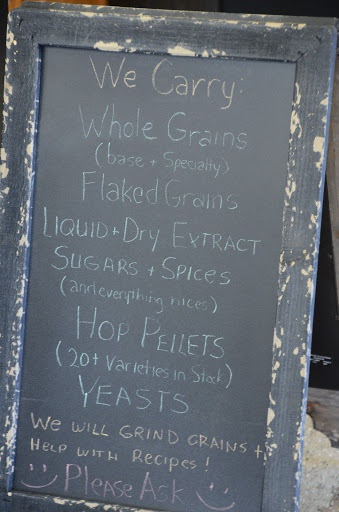 We Carry:
Whole Grains
(base + Specialty)
Flaked Grains
Liquid + Dry Extract
Sugars + Spices
(and everything nices)
Hop Pellets
(20+ Varieties in Stock)
Yeasts
We will grind grains +
Help with Recipes!
Please Ask